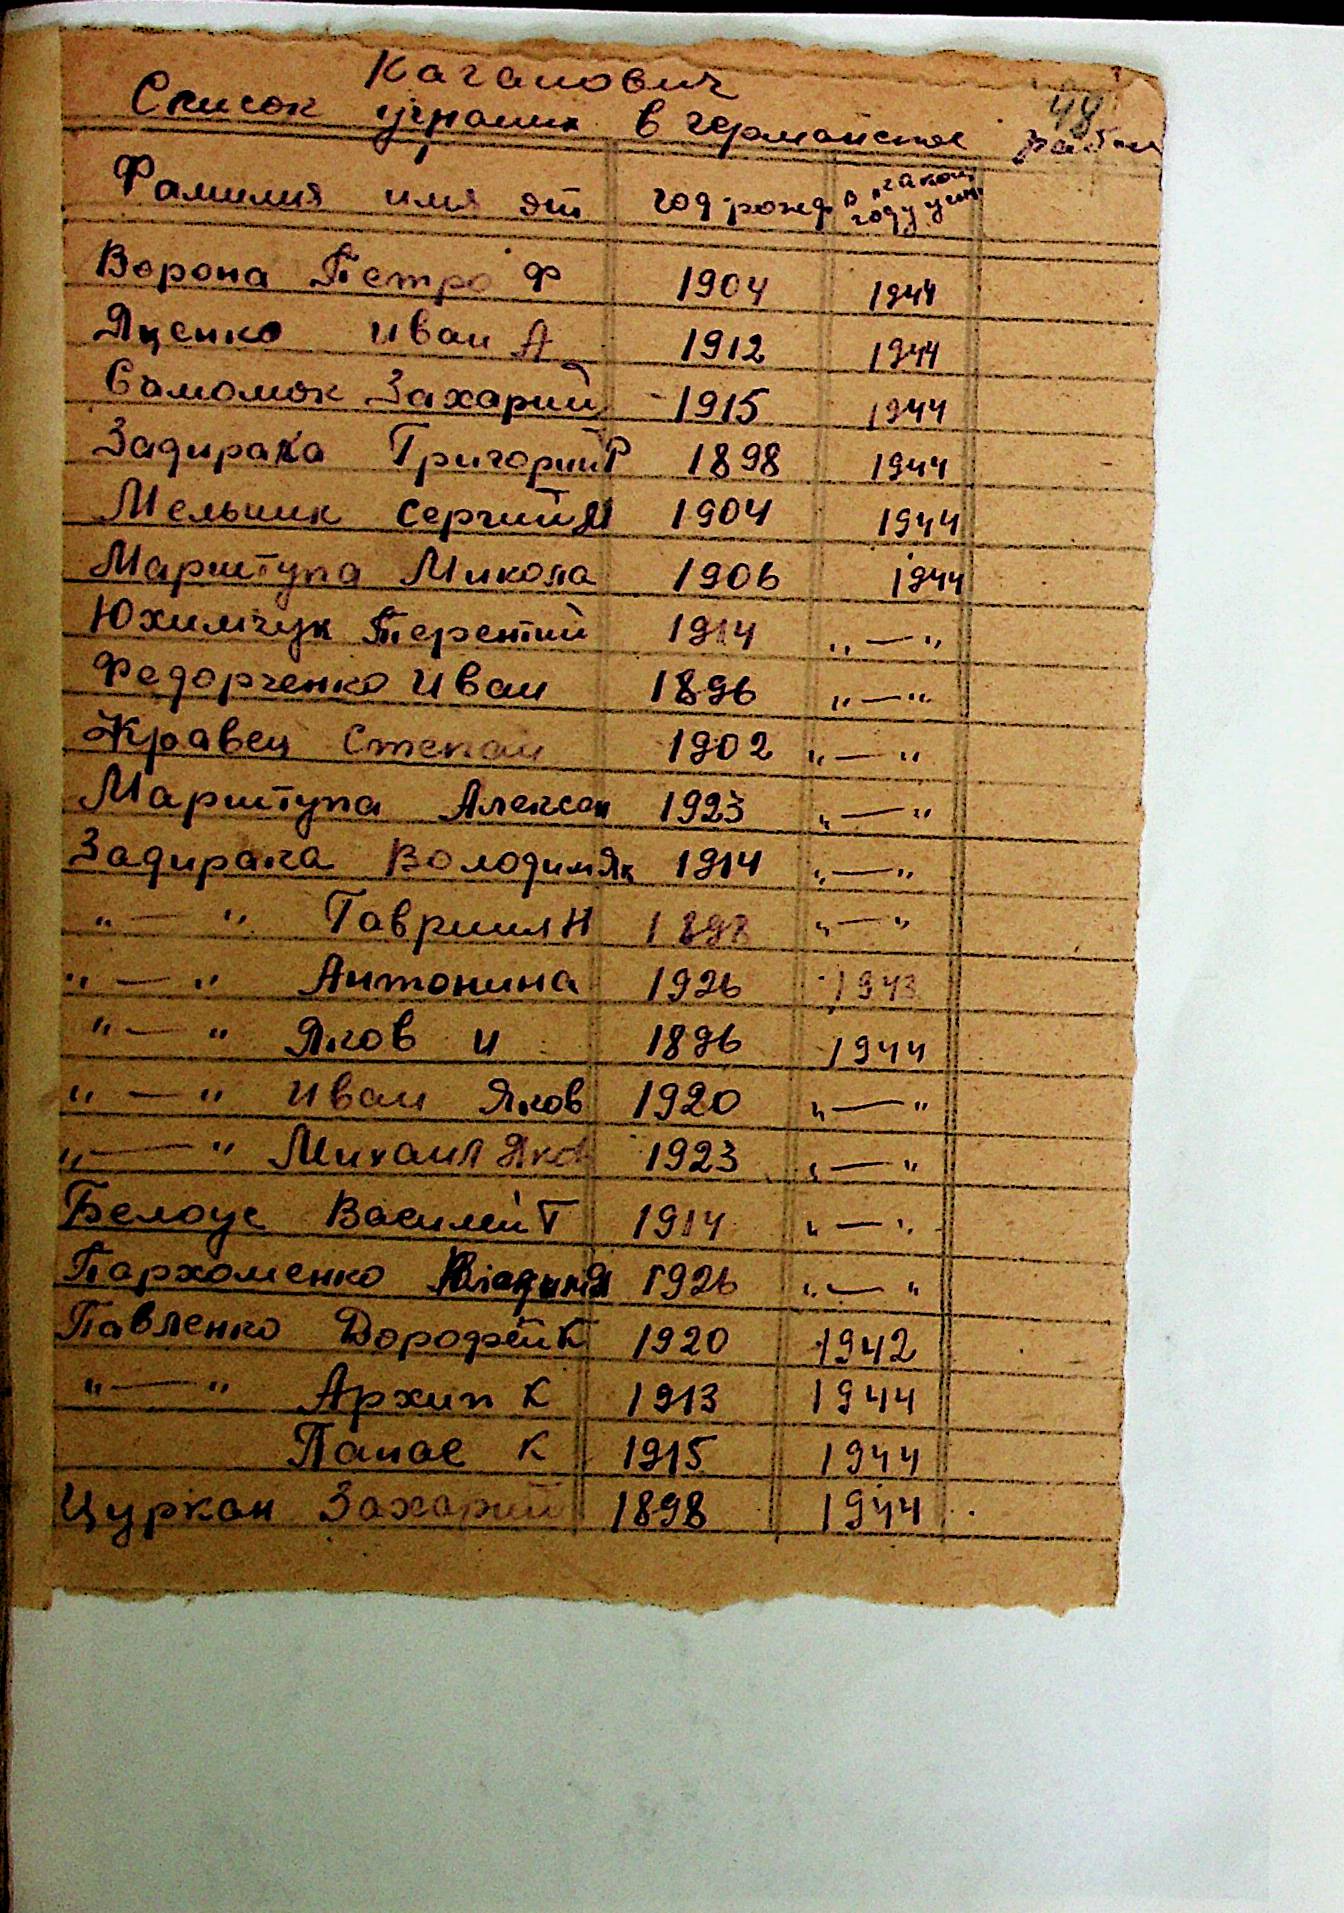 Каганович
48
Список угнаных в германское рабство
Фамилия имя от год рожд в каком году угн.
Ворона Петро Ф 1904 1944
Яценко Иван А 1912 1944
Самомок Захарий 1915 1944
Задирака Григорий Р 1898 1944
Мельник Сергий М 1904 1944
Марштупа Микола 1906 1944
Юхимчук Терентий 1914 „ — "
Федорченко Иван 1896 „ — "
Кравец Степан 1902 „ — "
Марштупа Алексан 1923 „ — "
Задирака Володим Як 1914 „ — "
„ — " Гавриил Н 1898 „ — "
„ — " Антонина 1926 1943
„ — " Яков И 1896 1944
„ — " Иван Яков 1920 „ — "
„ — " Михаил Яков 1923 „ — "
Белоус Василий Т 1914 „ — "
Пархоменко Владим Я 1926 „ — "
Павленко Дорофей К 1920 1942
„ — " Архип К 1913 1944
Панас К 1915 1944
Цуркан Захарий 1898 1944